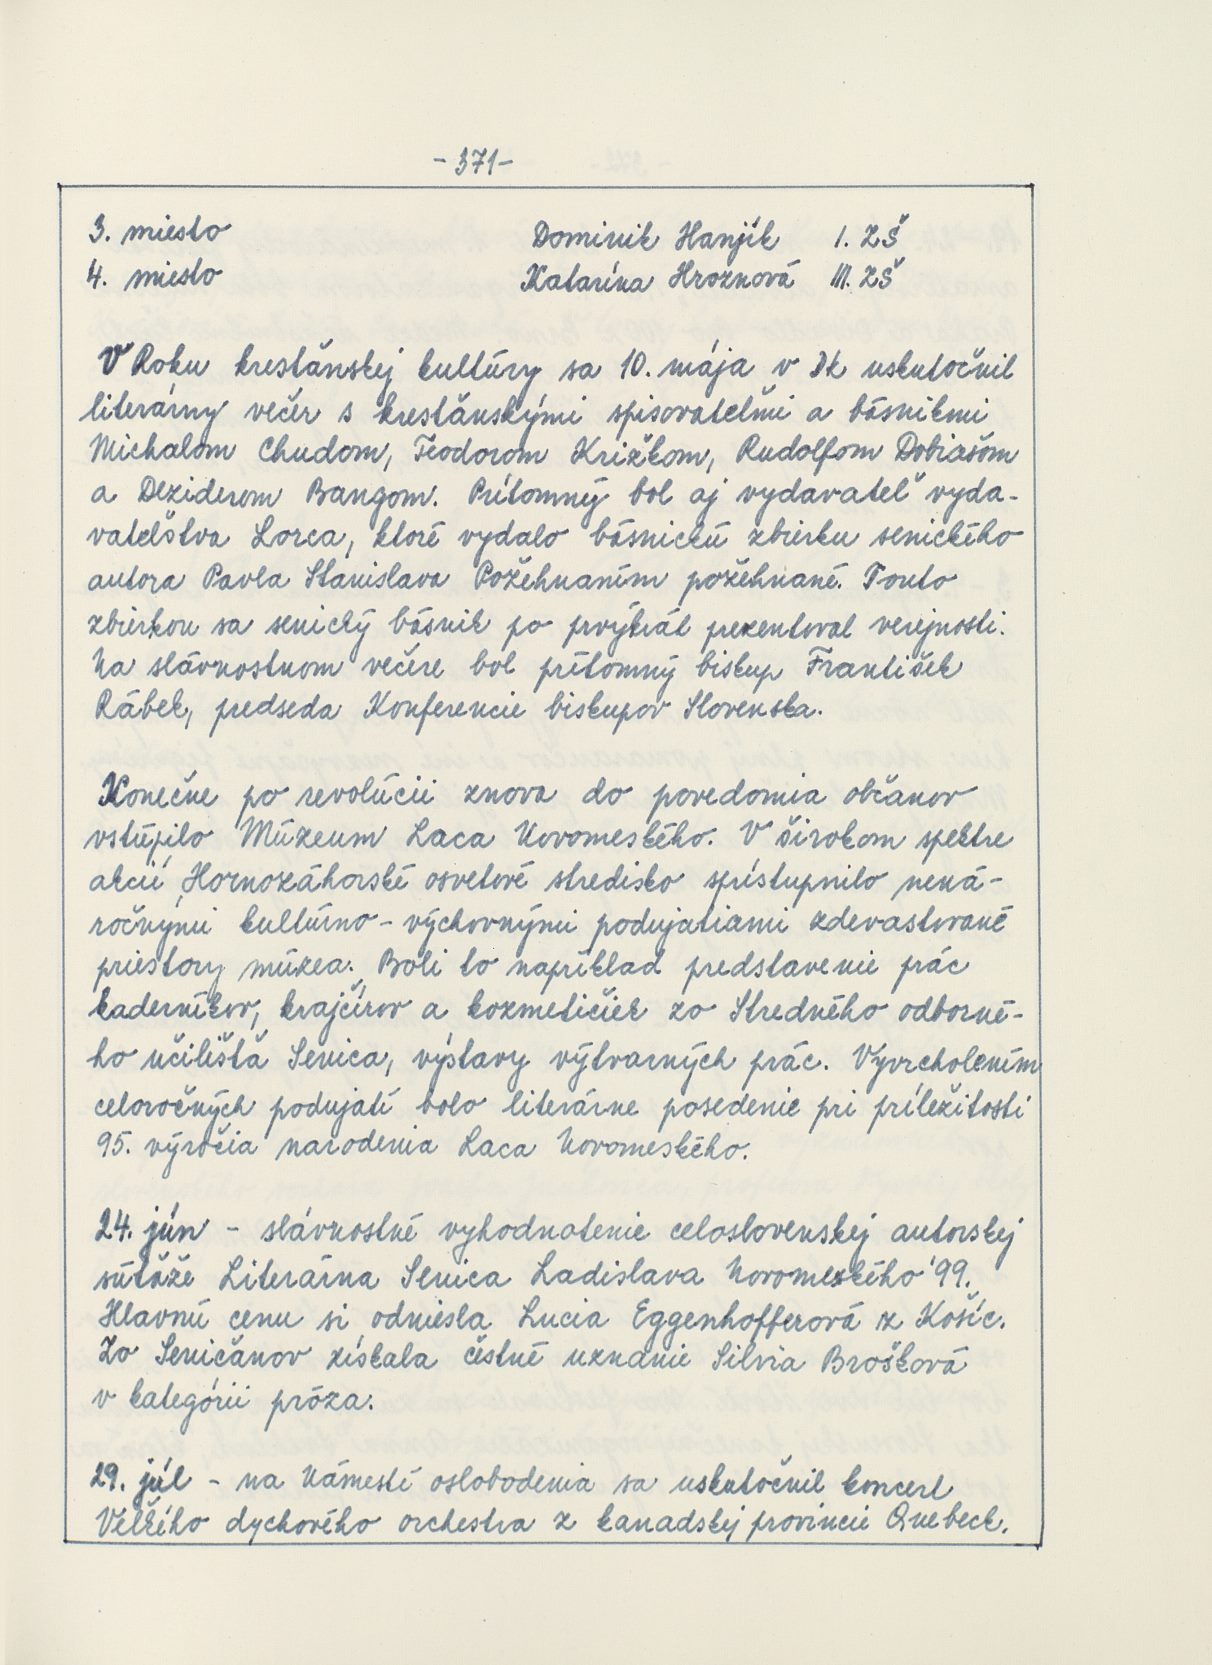 - 371 -
3. miesto Dominik Hanjík I. ZŠ
4. miesto Katarína Hroznová III. ZŠ
V Roku kresťanskej kultúry sa 10. mája v DK uskutočnil
literárny večer s kresťanskými spisovateľmi a básnikmi
Michalom Chudom, Teodorom Križkom, Rudolfom Dobiášom
a Deziderom Bangom. Prítomný bol aj vydavateľ vyda-
vateľstva Lorca, ktoré vydalo básnickú zbierku senického
autora Pavla Stanislava Požehnaním požehnané. Touto
zbierkou sa senický básnik po prvýkrát prezentoval verejnosti.
Na slávnostnom večere bol prítomný biskup František
Rábek, predseda Konferencie biskupov Slovenska.
Konečne po revolúcii znova do povedomia občanov
vstúpilo Múzeum Laca Novomeského. V širokom spektre
akcií Hornozáhorské osvetové stredisko sprístupnilo nená-
ročnými kultúrno - výchovnými podujatiami zdevastované
priestory múzea. Boli to napríklad predstavenie prác
kaderníkov, krajčírov a kozmetičiek zo Stredného odborné-
ho učilišťa Senica, výstavy výtvarných prác. Vyvrcholením
celoročných podujatí bolo literárne posedenie pri príležitosti
95. výročia narodenia Laca Novomeského.
24. jún - slávnostné vyhodnotenie celoslovenskej autorskej
súťaže Literárna Senica Ladislava Novomeského '99.
Hlavnú cenu si odniesla Lucia Eggenhofferová z Košíc.
Zo Seničanov získala čestné uznanie Silvia Brošková
v kategórii próza.
29. júl - na Námestí oslobodenia sa uskutočnil koncert
Veľkého dychového orchestra z kanadskej provincie Quebeck.